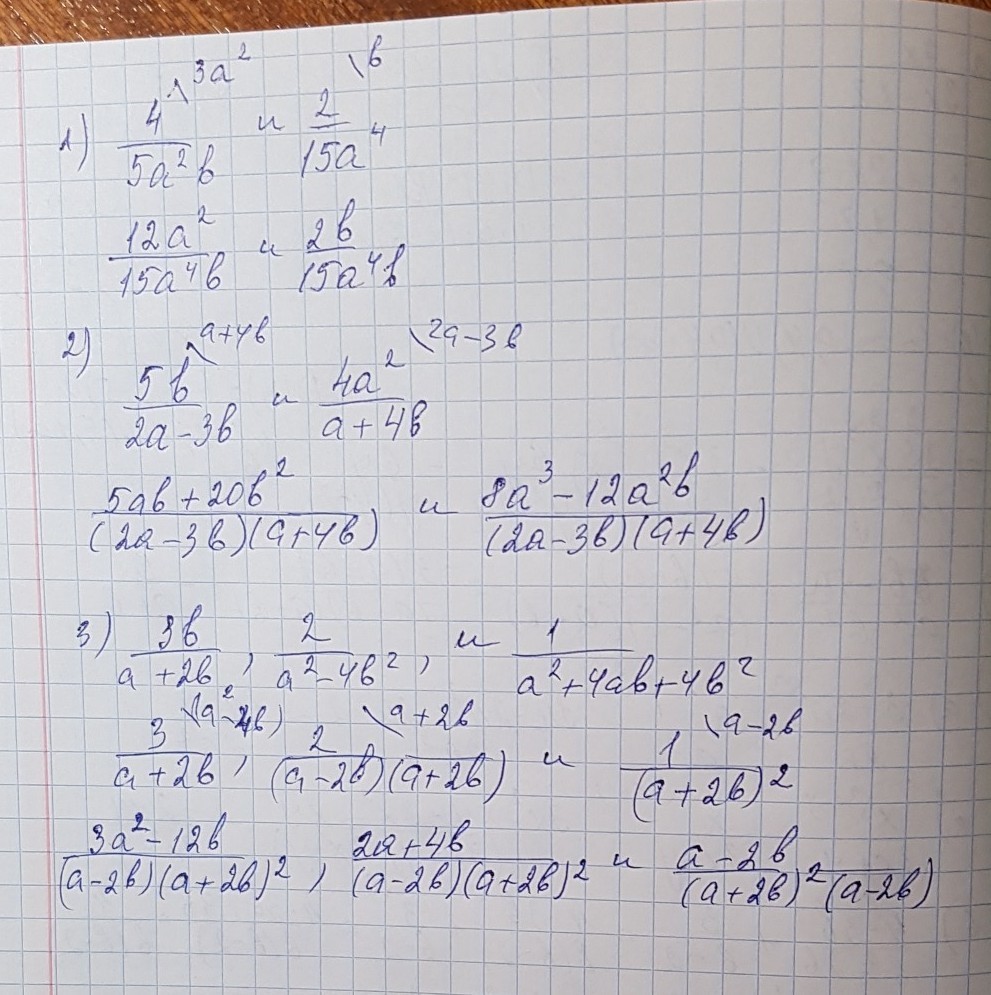 1) 4/(5a²b) \3a² и 2/(15a⁴) \b
12a²/(15a⁴b) и 2b/(15a⁴b)
2) 5b/(2a-3b) \a+4b и 4a²/(a+4b) \2a-3b
(5ab+20b²)/((2a-3b)(a+4b)) и (8a³-12a²b)/((2a-3b)(a+4b))
3) 3b/(a+2b), 2/(a²-4b²), и 1/(a²+4ab+4b²)
3/(a+2b) \(a²-4b), 2/((a-2b)(a+2b)) \a+2b и 1/(a+2b)² \a-2b
(3a²-12b)/((a-2b)(a+2b)²), (2a+4b)/((a-2b)(a+2b)²) и (a-2b)/((a+2b)²(a-2b))